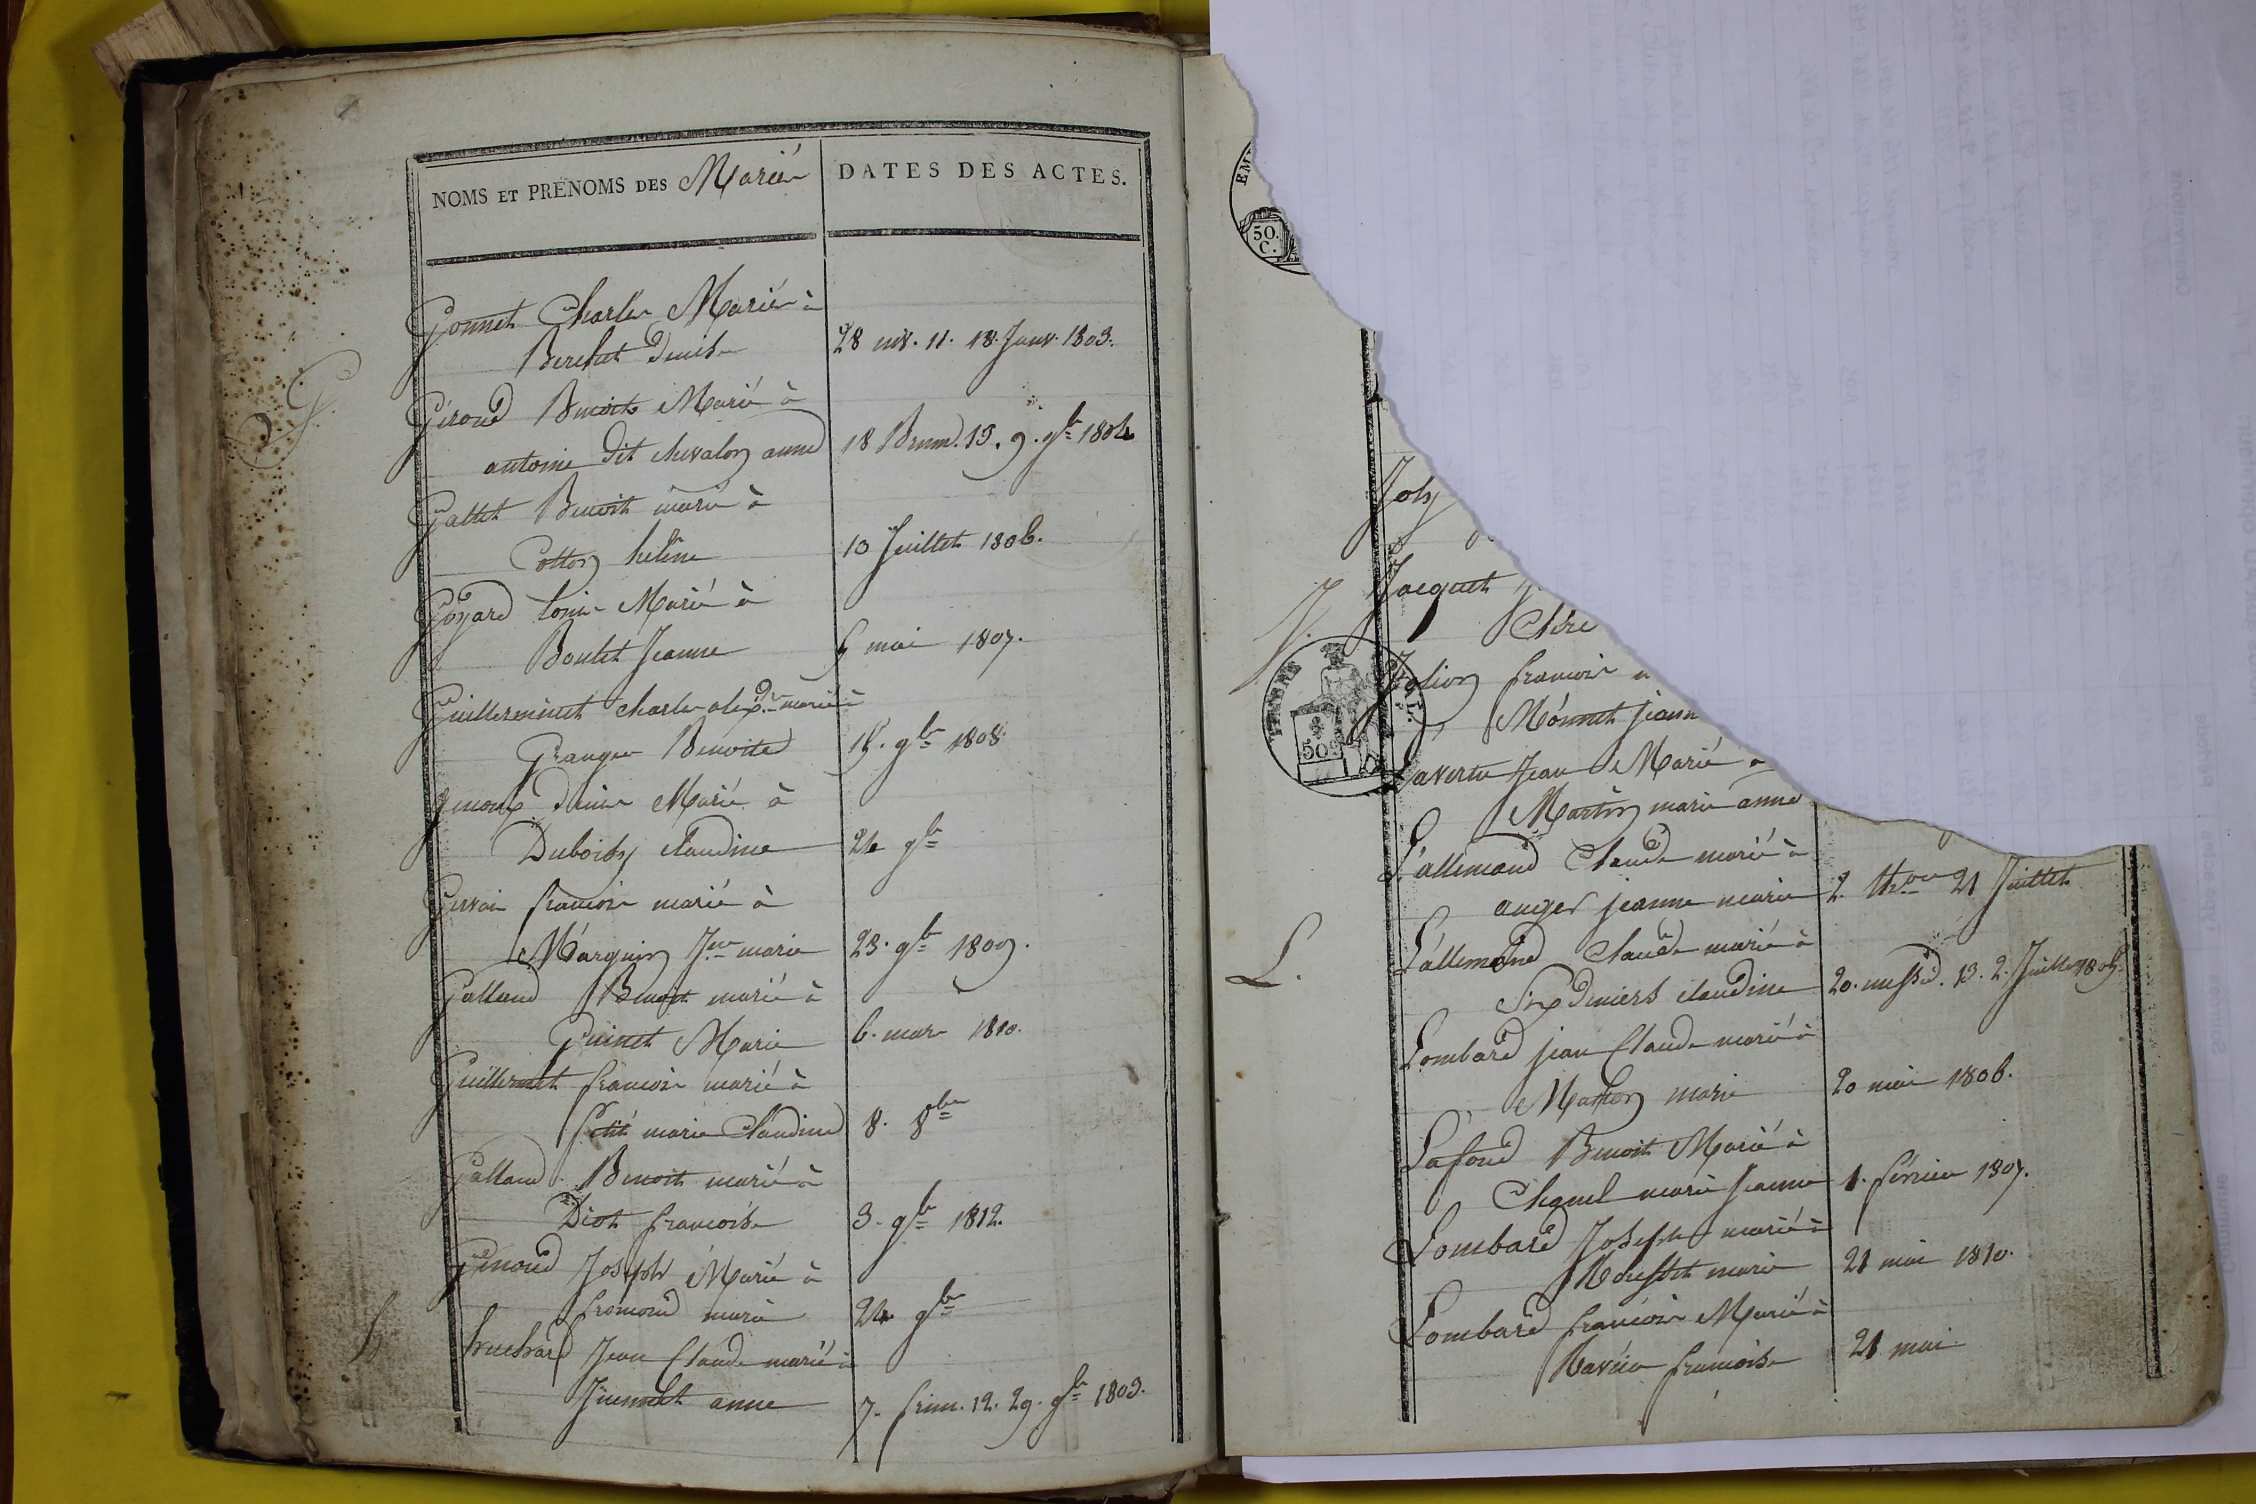 NOMS ET PRÉNOMS DES Mariés
DATES DES ACTES.
G.
Gonnet Charles Marié à
Berchet Denise 28 niv. 11. 18. Janv. 1803.
Giroud Benoit Marié à
antoine dit chevalon anne 18 Brum. 13. 9. 9bre 1804
Gallet Benoit marié à
Cotton heléne 10 Juillet 1806.
Goyard Louis Marié à
Boulet Jeanne 5 mai 1807.
Guilleminet charles alexdre marié à
Granger Benoite 15. 9bre 1808.
Genoux Denis Marié à
claudine 24 9bre
Gervais francois marié à
Marguin Jne marie 23. 9bre 1809.
Galland Benoit marié à
Guinet Marie 6. mars 1810.
Guillermet francois marié à
petit marie Claudine 8. 8bre
Galland Benoit marié à
Diot francoise 3. 9bre 1812.
Genoud Joseph Marié à
fromond marie 24 9bre
h
huchard Jean Claude marié à
anne 7. frim. 12. 29. 9bre 1803.
50.
C.
Joly
J.
Jacquet
Jolion francois
Monnet jeann
TIMBRE
50
Laverte Jean Marié à
Martin marie anne
L'allemand Claude marié à
auger jeanne marie 2. 21 Juillet
L.
L'allemand Claude marié à
Six deniers claudine 20. messid. 13. 2. Juillet 1805.
Lombard jean Claude marié à
marie 20 mai 1806.
Lafond Benoit Marié à
Chanel marie Jeanne 1. février 1807.
Lombard Joseph marié à
Rousset marie 21 mai 1810.
Lombard francois Marié à
Ravier francoise 21 mai